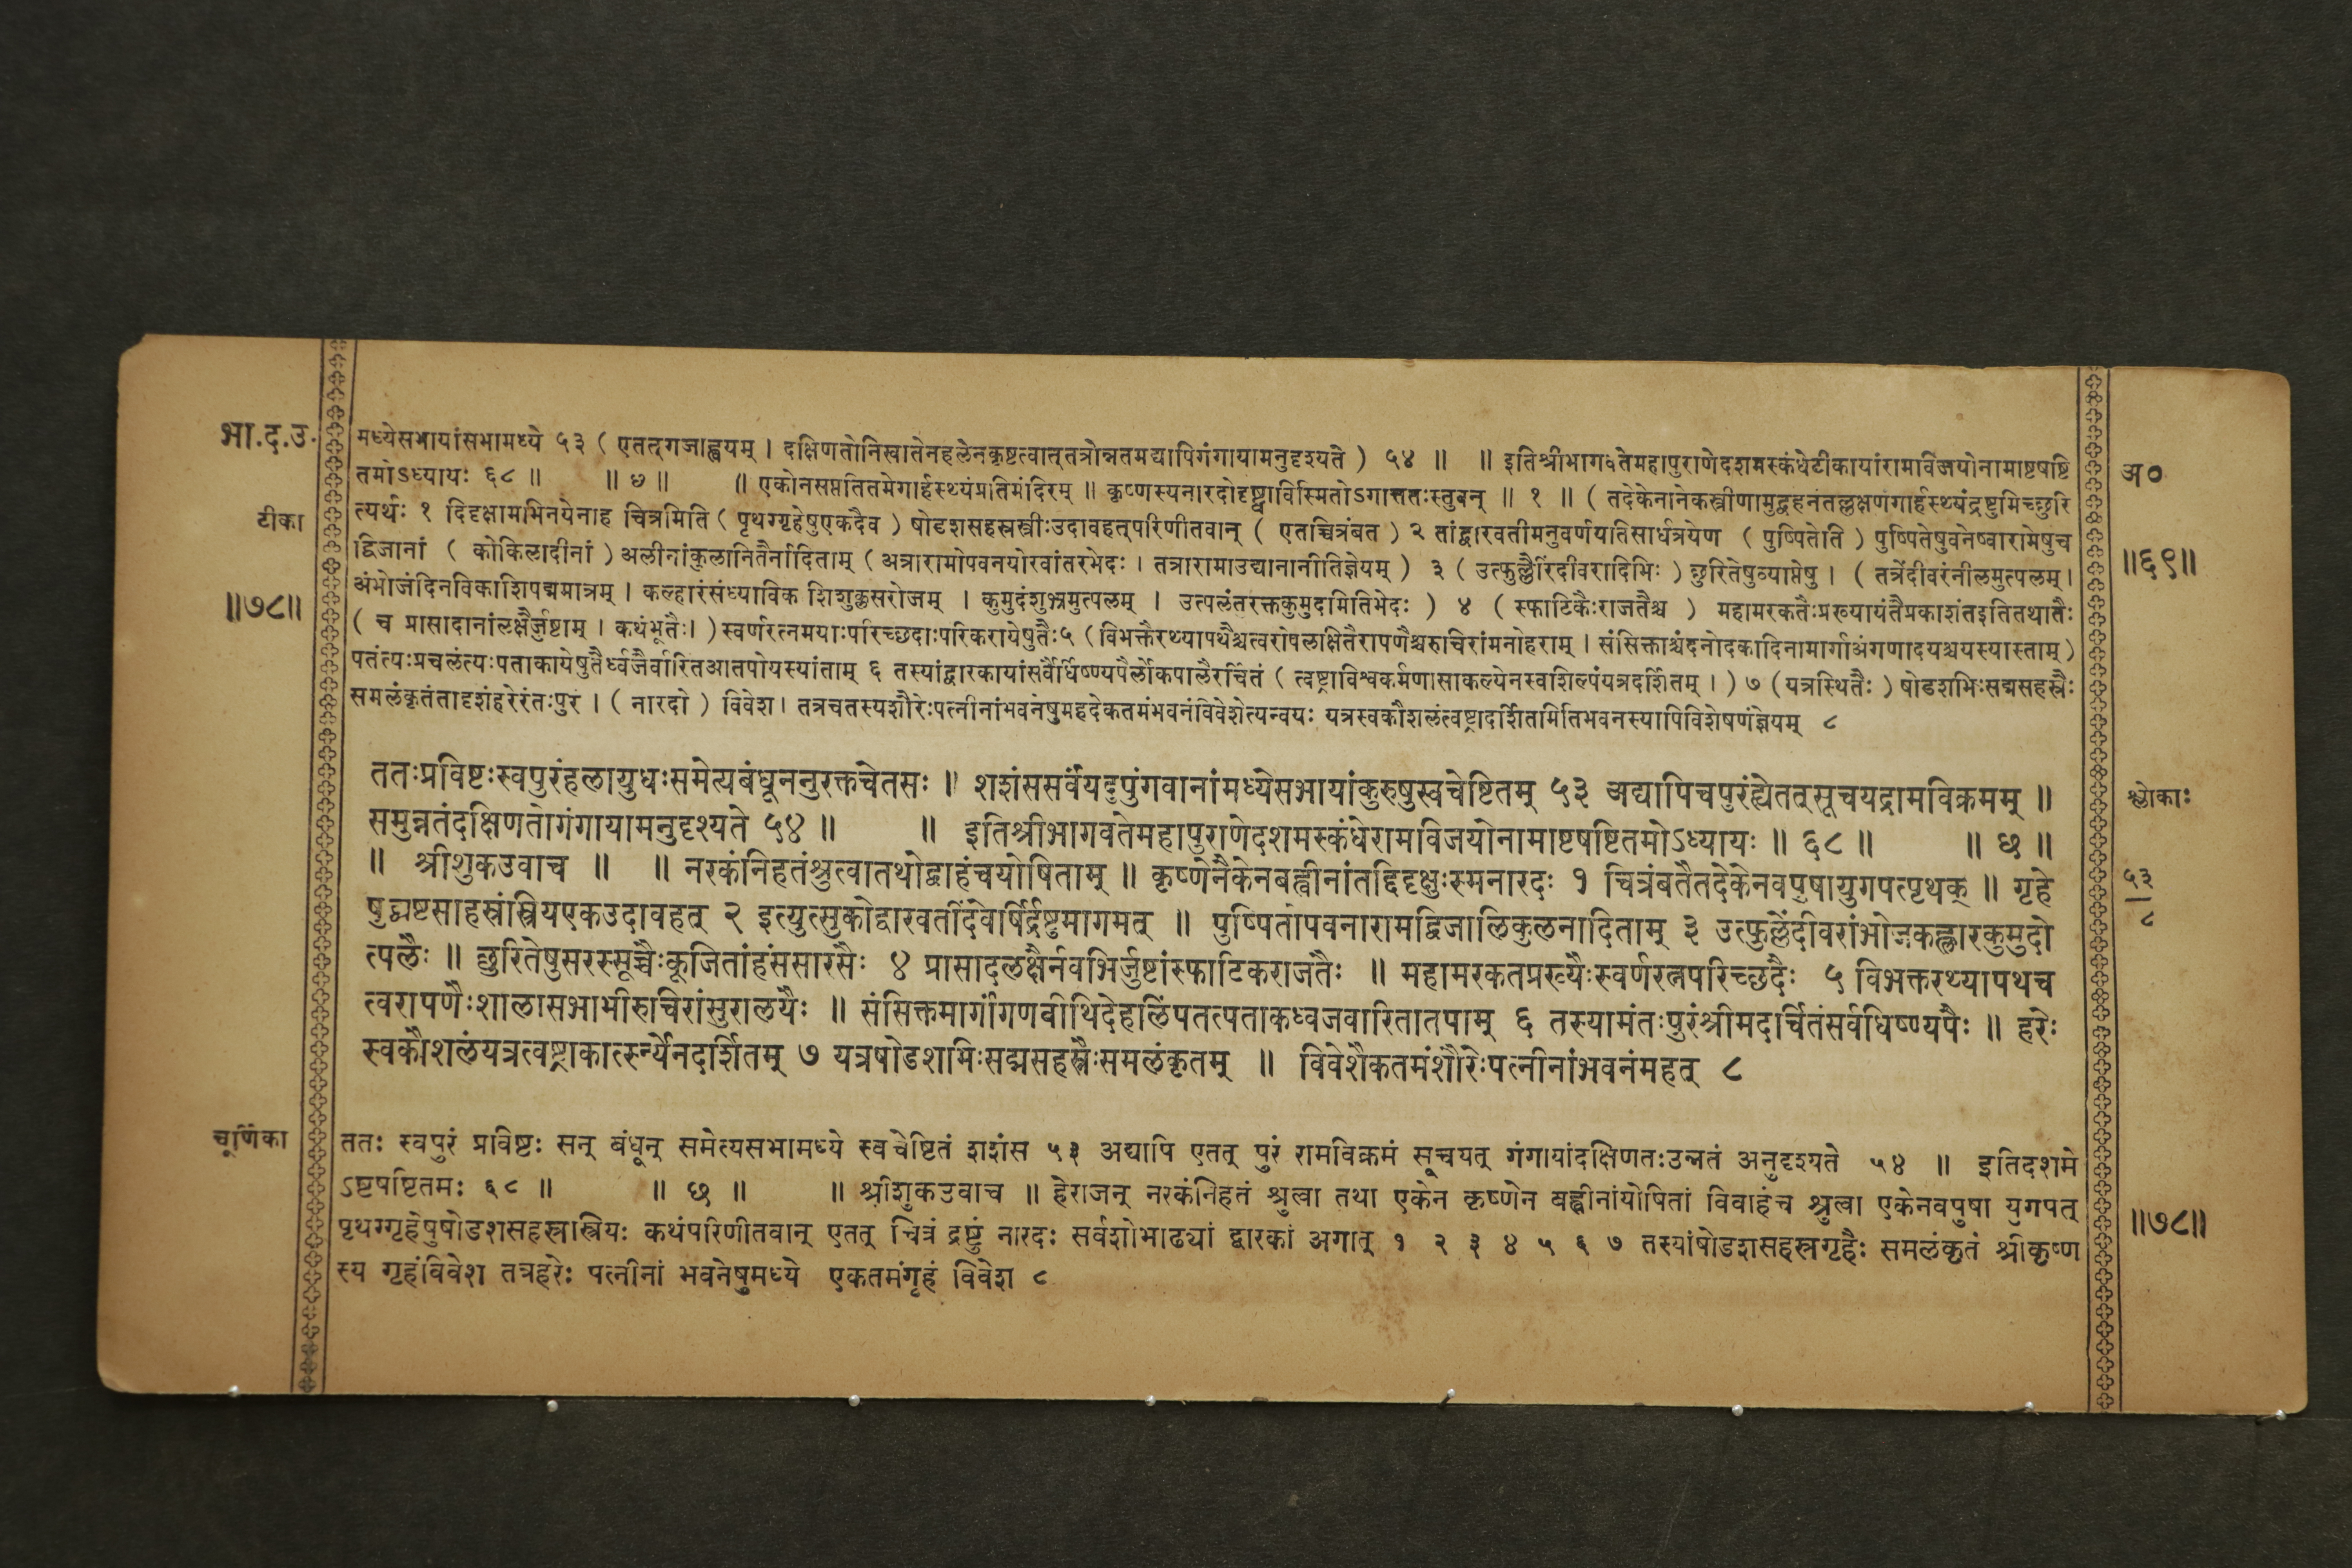 भा.द.उ.
टीका
॥७८॥
मध्येसभायांसभामध्ये ५३ ( एतत्‌गजाह्वयम् । दक्षिणतोनिखातेनहलेनकृष्टत्वात्‌तत्रोन्नतमद्यापिगंगायामनुदृश्यते ) ५४ ॥ ॥ इतिश्रीभागवतेमहापुराणेदशमस्कंधेटीकायांरामविजयोनामाष्टषष्टि
तमोऽध्यायः ६८ ॥ ॥ ७ ॥ ॥ एकोनसप्ततितमेगार्हस्थ्यंप्रतिमंदिरम् ॥ कृष्णस्यनारदोदृष्ट्वाविस्मितोऽगात्ततःस्तुवन् ॥ १ ॥ ( तदेकेनानेकस्त्रीणामुद्वहनंतल्लक्षणंगार्हस्थ्यंद्रष्टुमिच्छुरि
त्यर्थः १ दिदृक्षामभिनयेनाह चित्रमिति ( पृथग्गृहेषुएकदैव ) षोडशसहस्रस्त्रीःउदावहत्‌परिणीतवान् ( एतच्चित्रंबत ) २ तांद्वारवतीमनुवर्णयतिसार्धत्रयेण ( पुष्पितेति ) पुष्पितेषुवनेष्वारामेषुच
द्विजानां ( कोकिलादीनां ) अलीनांकुलानितैर्नादिताम् ( अत्रारामोपवनयोरवांतरभेदः । तत्रारामाउद्यानानीतिज्ञेयम् ) ३ ( उत्फुल्लैरिंदीवरादिभिः ) छुरितेषुव्याप्तेषु । ( तत्रेंदीवरंनीलमुत्पलम् ।
अंभोजंदिनविकाशिपद्ममात्रम् । कल्हारंसंध्याविक शिशुक्लसरोजम् । कुमुदंशुभ्रमुत्पलम् । उत्पलंतरक्तकुमुदमितिभेदः ) ४ ( स्फाटिकैःराजतैश्च ) महामरकतैःप्रख्यायंतैप्रकाशंतइतितथातैः
( च प्रासादानांलक्षैर्जुष्टाम् । कथंभूतैः। ) स्वर्णरत्नमयाःपरिच्छदाःपरिकरायेषुतैः५ ( विभक्तैरथ्यापथैश्चत्वरोपलक्षितैरापणैश्चरुचिरांमनोहराम् । संसिक्ताश्चंदनोदकादिनामार्गाअंगणादयश्चयस्यास्ताम् )
पतंत्यःप्रचलंत्यःपताकायेषुतैर्ध्वजैर्वारितआतपोयस्यांताम् ६ तस्यांद्वारकायांसर्वैर्धिष्ण्यपैर्लोकपालैरर्चितं ( त्वष्ट्राविश्वकर्मणासाकल्येनस्वशिल्पंयत्रदर्शितम् । ) ७ ( यत्रस्थितैः ) षोडशभिःसद्मसहस्रैः
समलंकृतंतादृशंहरेरंतःपुरं । ( नारदो ) विवेश । तत्रचतस्यशौरेःपत्नीनांभवनेषुमहदेकतमंभवनंविवेशेत्यन्वयः यत्रस्वकौशलंत्वष्ट्रादर्शितमितिभवनस्यापिविशेषणंज्ञेयम् ८
अ०
॥६९॥
ततःप्रविष्टःस्वपुरंहलायुधःसमेत्यबंधूननुरक्तचेतसः ॥ शशंससर्वंयदुपुंगवानांमध्येसभायांकुरुषुस्वचेष्टितम् ५३ अद्यापिचपुरंह्येतत्‌सूचयद्रामविक्रमम् ॥
समुन्नतंदक्षिणतोगंगायामनुदृश्यते ५४ ॥ ॥ इतिश्रीभागवतेमहापुराणेदशमस्कंधेरामविजयोनामाष्टषष्टितमोऽध्यायः ॥ ६८ ॥ ॥ छ ॥
॥ श्रीशुकउवाच ॥ ॥ नरकंनिहतंश्रुत्वातथोद्वाहंचयोषिताम् ॥ कृष्णेनैकेनबह्वीनांतद्दिदृक्षुःस्मनारदः १ चित्रंबतैतदेकेनवपुषायुगपत्पृथक् ॥ गृहे
षुद्व्यष्टसाहस्रंस्त्रियएकउदावहत् २ इत्युत्सुकोद्वारवतींदेवर्षिर्द्रष्टुमागमत् ॥ पुष्पितोपवनारामद्विजालिकुलनादिताम् ३ उत्फुल्लेंदीवरांभोजकह्लारकुमुदो
त्पलैः ॥ छुरितेषुसरस्सूच्चैःकूजितांहंससारसैः ४ प्रासादलक्षैर्नवभिर्जुष्टांस्फाटिकराजतैः ॥ महामरकतप्रख्यैःस्वर्णरत्नपरिच्छदैः ५ विभक्तरथ्यापथच
त्वरापणैःशालासभाभीरुचिरांसुरालयैः ॥ संसिक्तमार्गांगणवीथिदेहलिंपतत्पताकध्वजवारितातपाम् ६ तस्यामंतःपुरंश्रीमदर्चितंसर्वधिष्ण्यपैः ॥ हरेः
स्वकौशलंयत्रत्वष्ट्राकार्त्स्न्येनदर्शितम् ७ यत्रषोडशभिःसद्मसहस्रैःसमलंकृतम् ॥ विवेशैकतमंशौरेःपत्नीनांभवनंमहत् ८
श्लोकाः
५३
८
चूर्णिका
ततः स्वपुरं प्रविष्टः सन् बंधून् समेत्यसभामध्ये स्वचेष्टितं शशंस ५३ अद्यापि एतत् पुरं रामविक्रमं सूचयत् गंगायांदक्षिणतःउन्नतं अनुदृश्यते ५४ ॥ इतिदशमे
ऽष्टषष्टितमः ६८ ॥ ॥ छ ॥ ॥ श्रीशुकउवाच ॥ हेराजन् नरकंनिहतं श्रुत्वा तथा एकेन कृष्णेन बह्वीनांयोषितां विवाहंच श्रुत्वा एकेनवपुषा युगपत्
पृथग्गृहेषुषोडशसहस्रास्त्रियः कथंपरिणीतवान् एतत् चित्रं द्रष्टुं नारदः सर्वशोभाढ्यां द्वारकां अगात् १ २ ३ ४ ५ ६ ७ तस्यांषोडशसहस्रगृहैः समलंकृतं श्रीकृष्ण
स्य गृहंविवेश तत्रहरेः पत्नीनां भवनेषुमध्ये एकतमंगृहं विवेश ८
॥७८॥